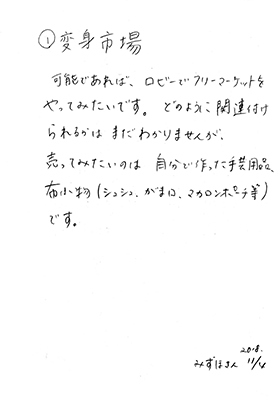 ①変身市場
可能であれば、ロビーでフリーマーケットを
やってみたいです。どのように関連付け
られるかは まだわかりませんが、
売ってみたいのは 自分で作った手芸用品、
布小物(シュシュ、がま口、マカロンポーチ等)
です。
2018.
みずほさん 11/14